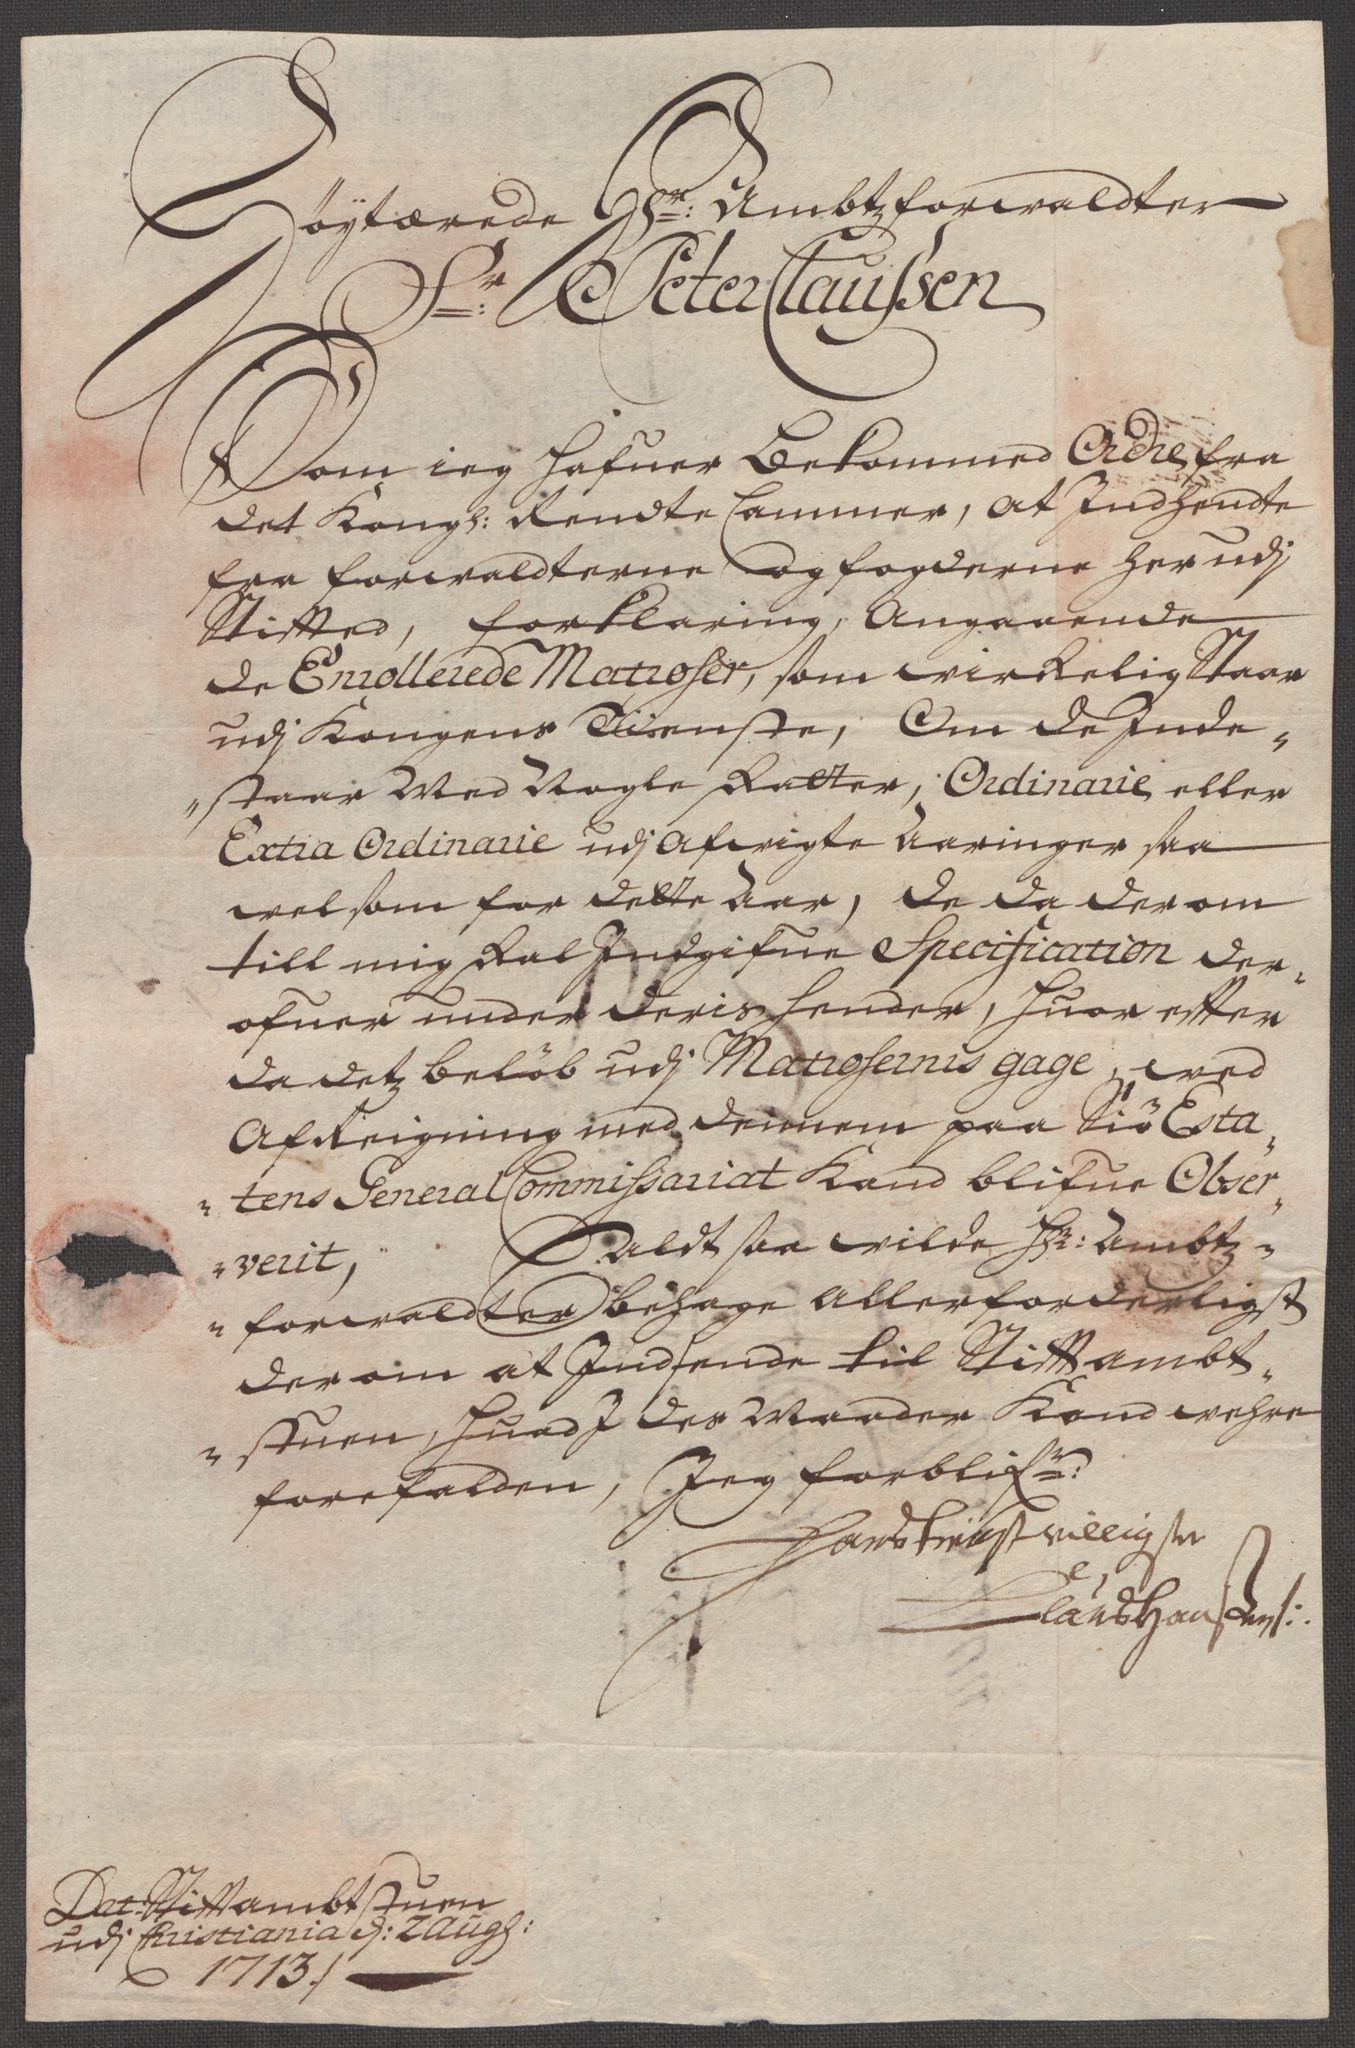 Höÿtærede Hr: Ambtzforwaldter
Sr: Peter Claussen
Som ieg hafuer Bekommed Ordre fra
det Kongl: Rendte Cammer, at Indhendte
fra forwaldterne og fogderne her udj
Stifted, forklaring, Angaaende
de Enrollerede Matroser, som wirkelig Staar
udj Kongens Tieniste, Om de Inde„
„staar Med Nogle Ratter, Ordinarie eller
Extra Ordinarie udj Afwigte Aaringer saa
wel som for dette Aar, de da der om
till mig skal Indgifue Specification der„
ofuer under deris hender, huor effter
da detz beløb udj Matrosernis gage, wed
Afreigning med dennem paa Siö Esta„
„tens General Commissariat Kand blifue Obser„
„verit, Altsaa wilde Hr: Ambtz„
„forwaldter behage Allerforderligst
der om at Indsende til Stifft ambt„
„stuen, huad I des Maader Kand wehre
forefalden, Jeg forblifr:
Hands tienstvilligste
Claus Hansen/:
Dat: Stifftambtstuen
udj Christiania d: 2 Augs:
1713./